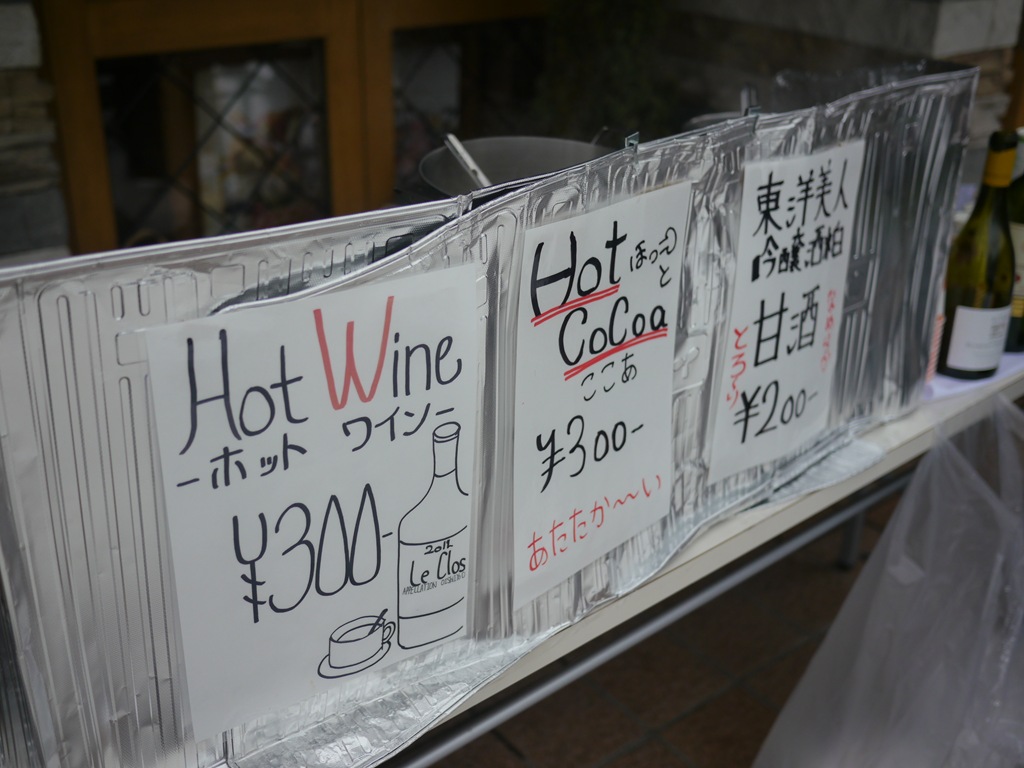 Hot Wine
-ホット ワイン-
¥300-
2011
Le Clos
Hot ほっと
と
CoCoa
ここあ
¥300-
あたたか〜〜い
東洋美人
吟醸酒粕
甘酒
とろ〜り
¥200-